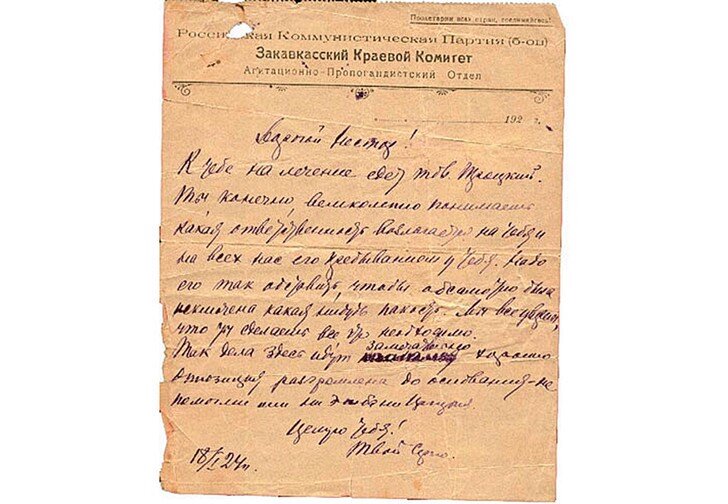 Пролетарии всех стран, соединяйтесь!
Российская Коммунистическая Партия (б-ов)
Закавкасский Краевой Комитет
Агитационно-Пропогандистский Отдел
192 г.
Дорогой Нестор!
К тебе на лечение едет тов. Троцкий.
Ты конечно великолепно понимаешь
какая ответственность возлагается на тебя и
на всех нас его пребыванием у тебя. Надо
его так обставить, чтобы абсолютно была
исключена какая нибудь пакость. Мы все уверены,
что ты сделаешь все что необходимо.
замечательно
Так дела здесь идут хорошо
Оппозиция разгромлена до основания - не
помогли или ни
Целую тебя!
Твой Серго.
18/I 24 г.